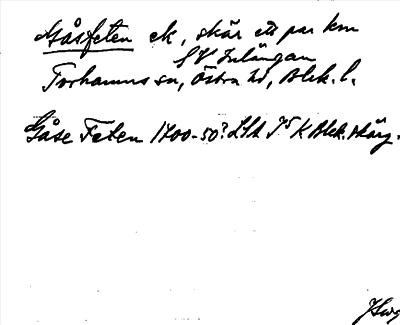 Gåsfeten ek, skär ett par km
SV Inlängan
Torhamns sn, Östra hd, Blek. l.
Gåse Feten 1700-50? LSA J5 K Blek. skärg.